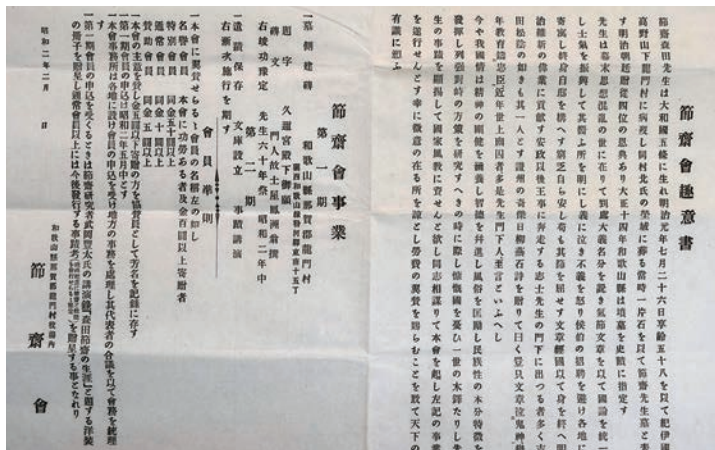 節齋會趣意書
節齋森田先生は大和國五條に生れ明治元年七月二十六日享齡五十八を以て紀伊國
高野山下龍門村に病歿し同村北氏の塋域に葬る當時一片石を以て節齋先生墓と表
す明治朝廷贈從四位の恩典あり大正十四年和歌山縣は墳墓を史蹟に指定す
先生は幕末思想混亂の世に在りて到處大義名分を說き氣節文章を以て國論を統一
し士氣を振興して其嚮ふ所を明にし義に泣き不義を怒り侯伯の招聘を避け各地に
寄寓し終身自郡を構へす窮乏自ら安し苟も其節を屈せす文章經國以て身を終へ明
治維新の偉業に貢獻す安政以後王事に奔走する志士先生の門下に出つる者多く吉
田松陰の如きも其一人とす讚州の奇傑日柳燕石詩を贈りて曰く豈只文章泣鬼神
年教育達忠臣近年世上幽囚者多是先生門下人至言といふへし
今や我國情は精神の剛健を涵養し智德を幷進し風俗を匡勵し民族性の本分特徵を
發揮し列强對峙の方策を硏究すへきの時に際し慷慨國を憂ひ一世の木鐸たりし先
生の事蹟を顯揭して國家風敎に資せんと欲し同志相謀りて本會を起し左記の事業
を遂行せんとす幸に微意の在る所を諒とし勞費の翼賛を賜らむことを敢て天下の
有識に愬ふ
節齋會事業
第一期
一墓側建碑 和歌山縣那賀郡龍門村
題字 久邇宮殿下御願
碑文 門人故土屋鳳洲翁撰
右竣功豫定 先生六十年祭 昭和二年中
第二期
一遺蹟保存 文庫設立 事蹟講演
右漸次施行を期す
會員準則
一本會に翼賛せらるゝ會員の名稱左の如し
名譽會員 本會に功勞ある者及金百圓以上寄贈者
特別會員 同金五十圓以上
通常會員 同金十圓以上
賛助會員 同金五圓以上
一本會の主意を賛し金五圓以下寄贈の方を協賛員として芳名を記錄に存す
一第一期會員の申込は昭和二年五月中とす
一本會事務所は各地に設け會員の申込を受け地方の事務を處理し其代表者の合議を以て會務を統理
一第一期會員の申込を受くるときは節齋研究者武岡豐太氏の講演錄「森田節齋の生涯」と題する洋裝
の冊子を贈呈し通常會員以上には今後發行する事蹟考を贈呈する事となれり
昭和二年二月 日
和歌山縣那賀郡龍門村役場內
節齋會